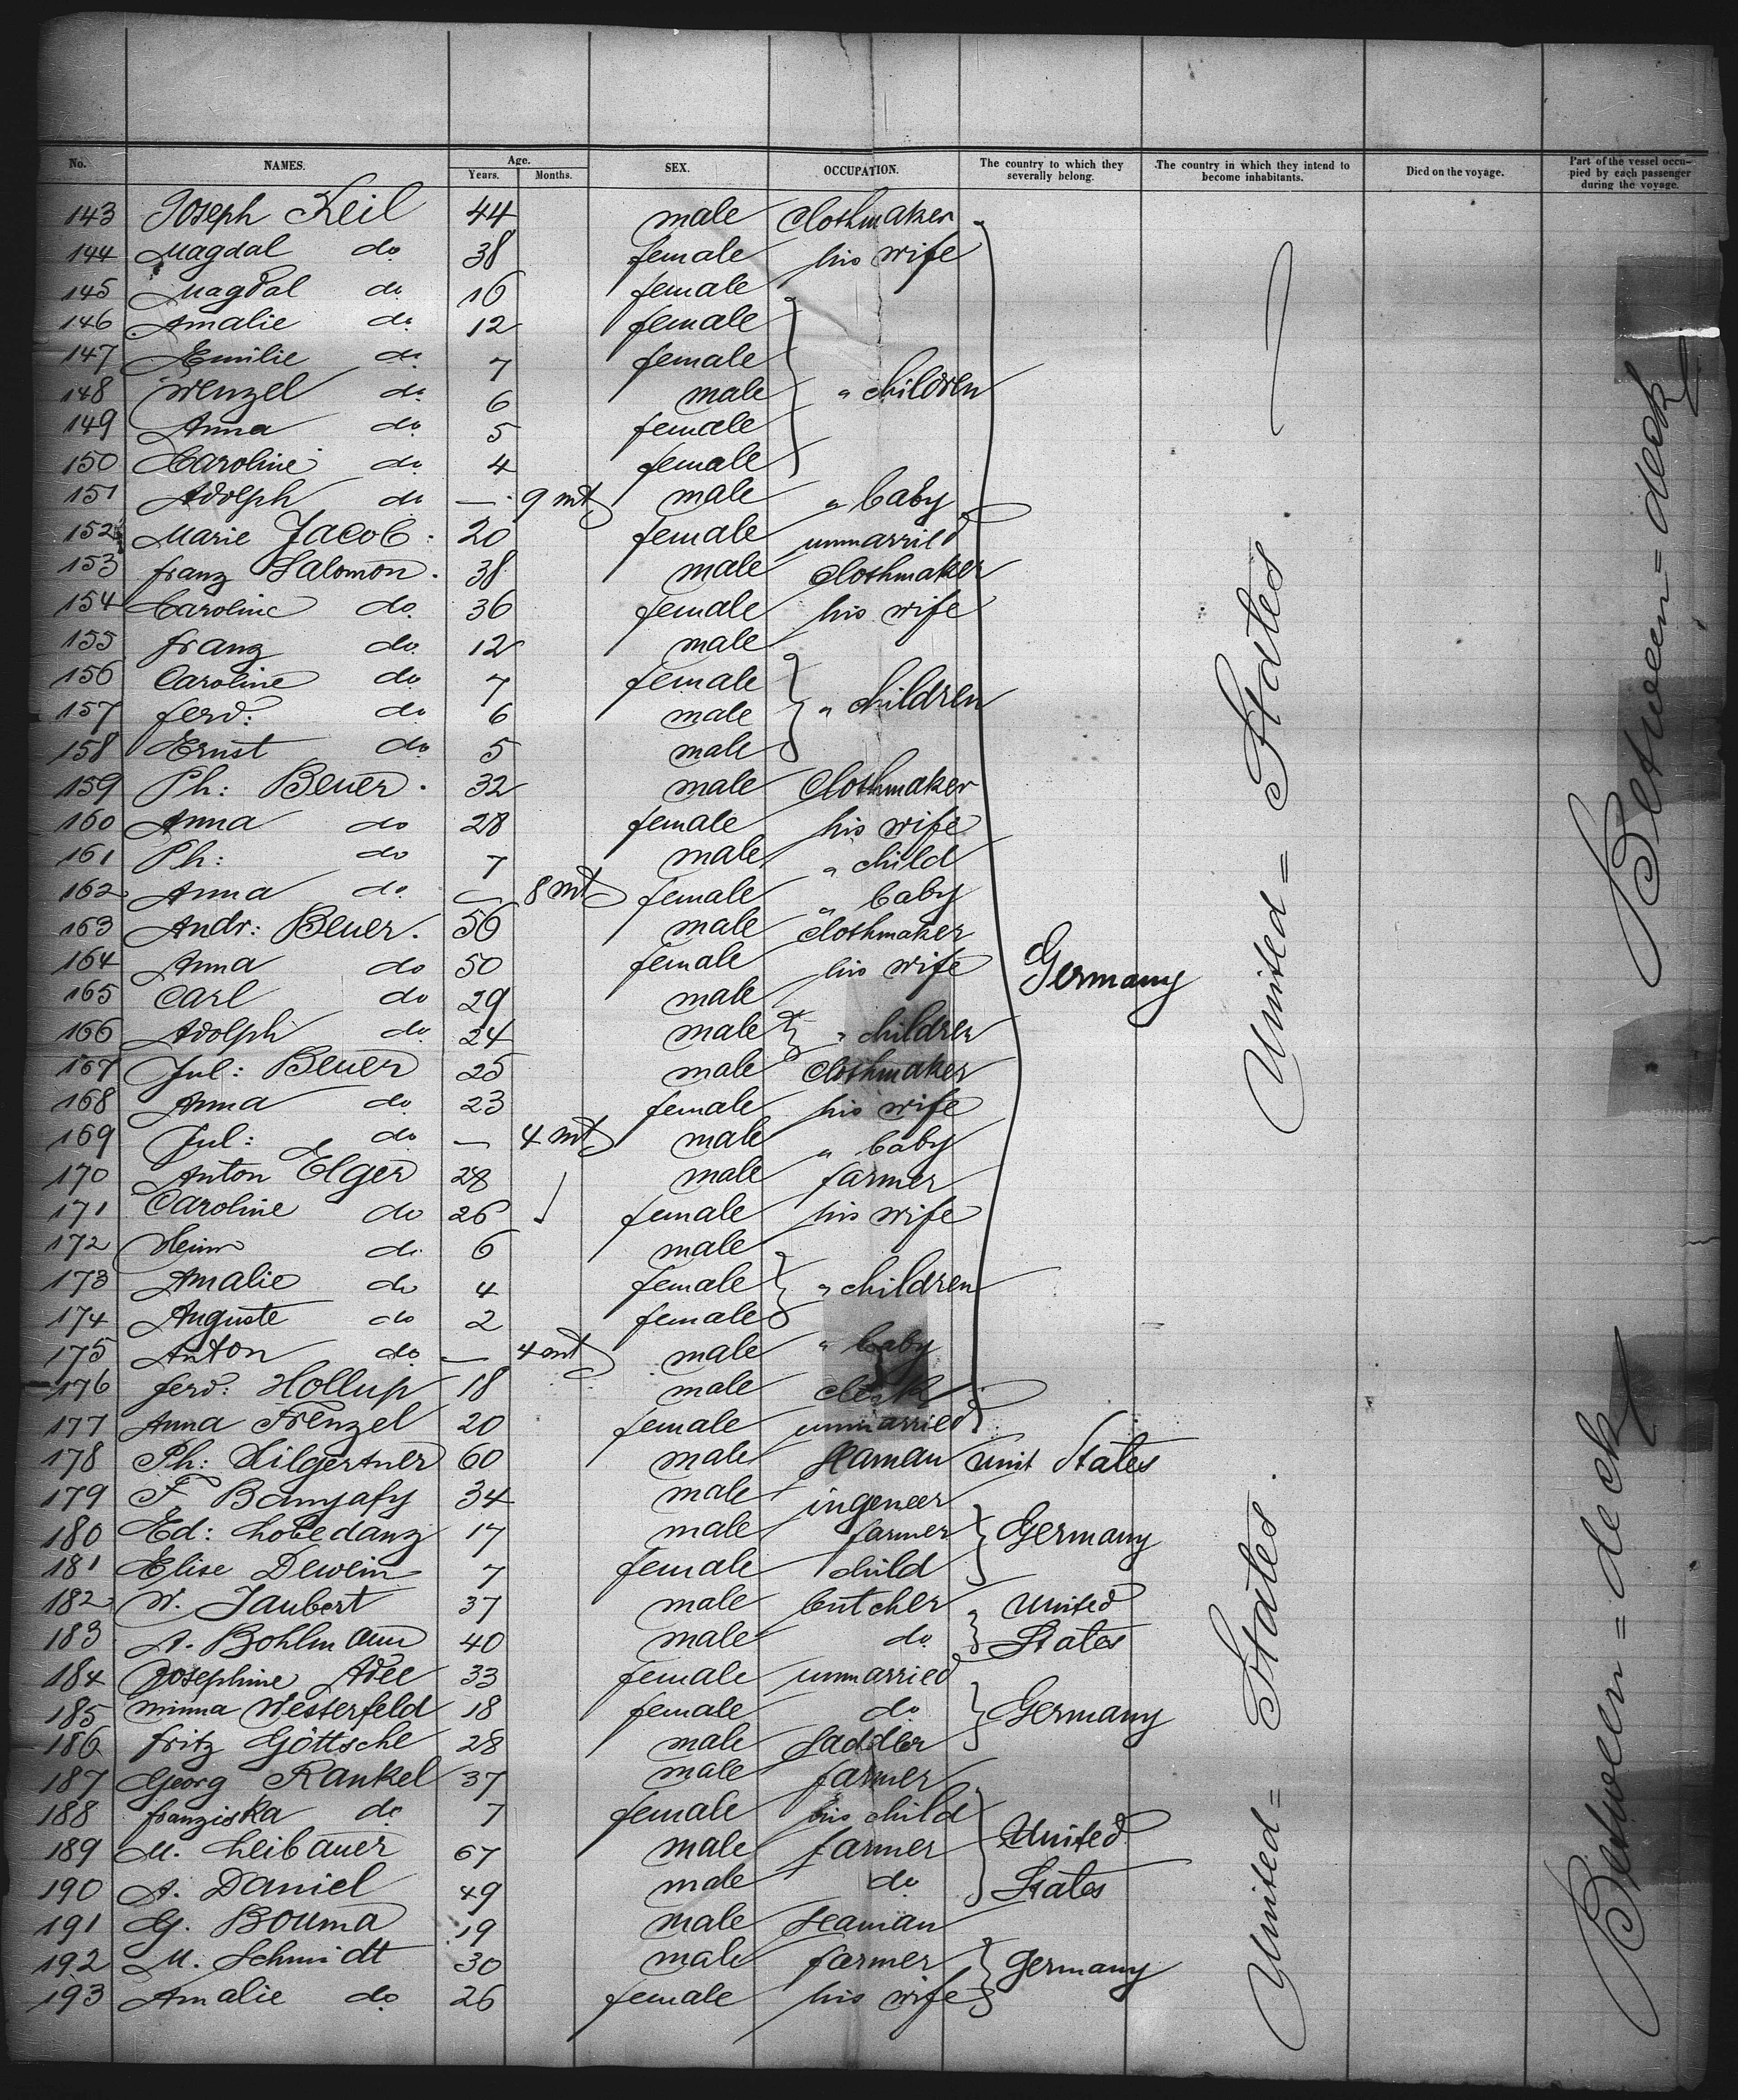 No. NAMES. Age. Years. Months. SEX. OCCUPATION. The country to which they severally belong. The country in which they intend to become inhabitants. Died on the voyage. Part of the vessel occupied by each passenger during the voyage.
143 Joseph Keil 44 male Clothmaker
144 Magdal do 38 female his wife
145 Magdal do 16 female
146 Amalie do 12 female
147 Emilie do 7 female
148 Wenzel do 6 male " children
149 Anna do 5 female
150 Caroline do 4 female
151 Adolph do — 9 mt male " baby
152 Marie Jacob 20 female unmarried
153 Franz Salomon 38 male Clothmaker
154 Caroline do 36 female his wife
155 Franz do 12 male
156 Caroline do 7 female
157 Ferd: do 6 male " children
158 Ernst do 5 male
159 Ph: Beuer 32 male Clothmaker
160 Anna do 28 female his wife
161 Ph: do 7 male " child
162 Anna do — 8 mt female " baby
163 Andr: Beuer 56 male clothmaker
164 Anna do 50 female his wife Germany
165 Carl do 29 male
166 Adolph do 24 male " children
167 Jul: Beuer 25 male Clothmaker
168 Anna do 23 female his wife
169 Jul: do — 4 mt male " baby
170 Anton Elger 28 male farmer
171 Caroline do 26 female his wife
172 Heinr do 6 male
173 Amalie do 4 female " children
174 Auguste do 2 female
175 Anton do — 4 mt male " baby
176 Ferd: Hollup 18 male clerk
177 Anna Frenzel 20 female unmarried
178 Ph: 60 male seaman Unit States
179 F. 34 male ingeneer
180 Ed: Lobedanz 17 male farmer Germany
181 Elise Dewein 7 female child
182 W. Jaubert 37 male butcher United
183 A. Bohlmann 40 male do States
184 Josephine Adee 33 female unmarried
185 Minna Westerfeld 18 female do Germany
186 Fritz Göttsche 28 male Saddler
187 Georg Rankel 37 male farmer
188 Franziska do 7 female his child
189 M. Leibauer 67 male farmer United
190 A. Daniel 49 male do States
191 G. Bouma 19 male Seaman
192 M. Schmidt 30 male farmer Germany
193 Amalie do 26 female his wife
United = States
United = States
Between = deck
Between = deck